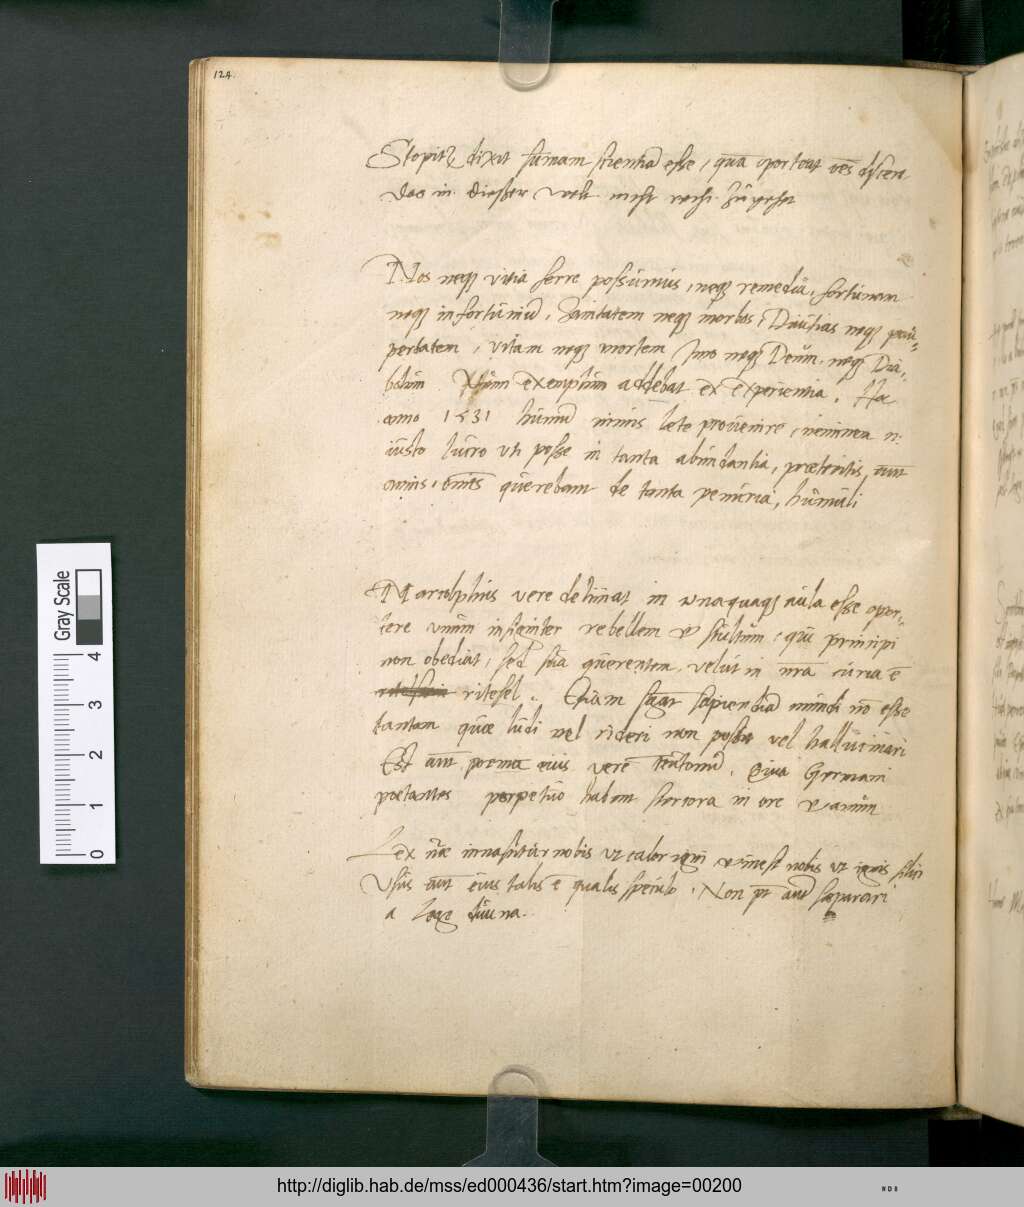 124.
Stopitz dixit sum̄am scientiā esse, quā oporteat oēs discere
das in dießer welt nicht recht zugehet
Nos neq vitia ferre possumus, neq remedia, fortunam
neq infortuniū, Sanitatem neq morbos, Diuitias neq pau-
pertatem, vitam neq mortem Imo neq Deum, neq Dia-
bolum exemplum addebat ex experientia. Hoc
anno 1531 humulū nimis lete prouenire, neminem
iusto lucro vti posse in tanta abundantia, praeteritis aut
annis, omnes querebant de tanta penuria, humuli
Marcolphus vere in vnaquaq aula esse opor-
tere vnum insigniter rebellem et stultum, qui principi
non obediat, sed sua querentem, velut in nrā curia ē
riteſel. Etiam sapientiā mundi nō esse
tantam que ludi vel rideri non possit vel hallucinari
Est aut poema eius vere Germani
poetantes perpetuo habent stercora in ore
Lex nāe innascitur nobis vt calor igni et inest nobis vt ignis silici
Vsus aut eius talis ē qualis speculo. Non pt aut separari
a lege diuina.
Gray Scale
4
3
2
1
0
http://diglib.hab.de/mss/ed000436/start.htm?image=00200